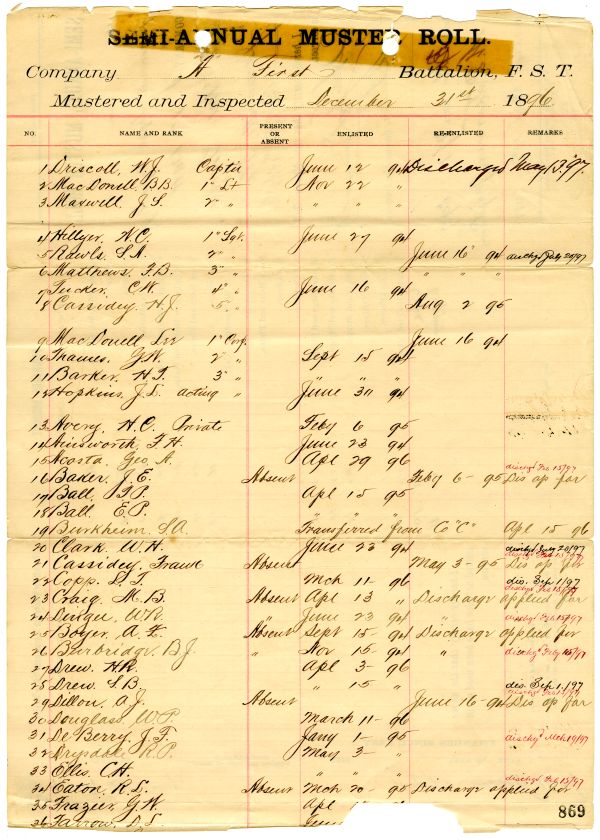 SEMI-ANNUAL MUSTER ROLL.
Company A First Battalion, F. S. T.
Mustered and Inspected December 31st 1896
NO. NAME AND RANK PRESENT OR ABSENT ENLISTED RE-ENLISTED REMARKS
1 Driscoll, W. J. Capt'n June 12 94 Discharged May 13, '97.
2 MacDonell B. B. 1" Lt Nov 22 "
3 Maxwell, J. S. 2" " " " "
4 Hillyer, N. C. 1" Sgt. June 27 94
5 Rawls, S. A. 2" " June 16 94
6 Matthews, J. B. 3" " " " "
7 Tucker, C. W. 4" " June 16 94
8 Cassidey, H. J. 5 " Aug 2 95
9 MacDonell, 1" Corp. June 16 94
10 Thames, G. W. 2" " Sept 15 94
11 Barker, H. T. 3" " " " "
12 Hopkins, J. L. acting " June 30 94
13 Avery, H. C. Private Feby 6 95
14 Ainsworth, F. H. June 23 94
15 Acosta, Geo. A. Apl 29 96
dischgd Feb 15/97
16 Baker, J. E. Absent Feby 6 - 95 Dis ap for
17 Ball, T. P. Apl 15 95
18 Ball E. P.
19 Burkheim, S. A. Transferred from Co "C" Apl 15 96
20 Clark, W. H. June 23 94 dischgd July 20/97
dischgd Feb 15/97
21 Cassidey, Frank Absent May 3 - 95 Dis ap for
22 Copp, S. T. Mch 11 - 96 dis. Sep 1/97
dischgd Feb 15/97
23 Craig, M. B. Absent Apl 13 " Discharge applied for
24 " June 23 94 " dischgd Feb 15/97
25 Boyer, A. Absent Sept 15 - 94 Discharge applied for
26 Burbridge, B J. " Nov 15 94 " dischgd Feby 15/97
27 Drew, H. R. Apl 3 - 96
28 Drew, S. B. " 15 " dis. Sep. 1/97
dischgd Feb 15/97
29 Dillon, A. J. Absent June 16 - 94 Dis ap for
30 Douglass, W. P. March 11 - 96
31 De Berry, J. F. Jany 1 - 95 dischgd Mch 19/97
32 Drysdale, R. P. May 3 "
33 Ellis, C. H. " "
dischgd Feb 15/97
34 Eaton, R. L. Absent Mch 20 - 95 Discharge applied for
35 Frazier, G. W. Apl
36 Farrow, S. S. June
869